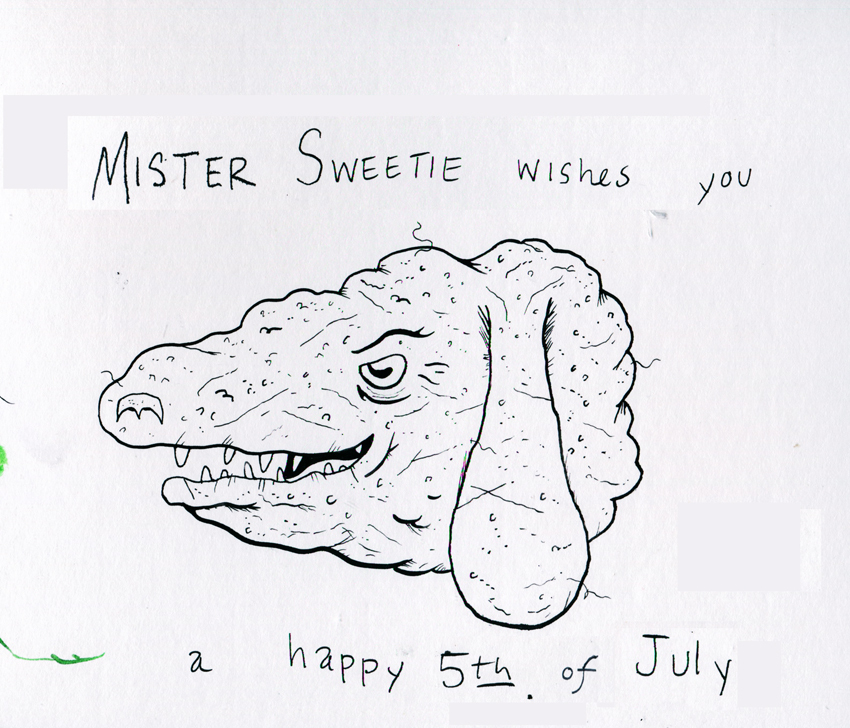 MISTER SWEETIE wishes you
a happy 5th. of July